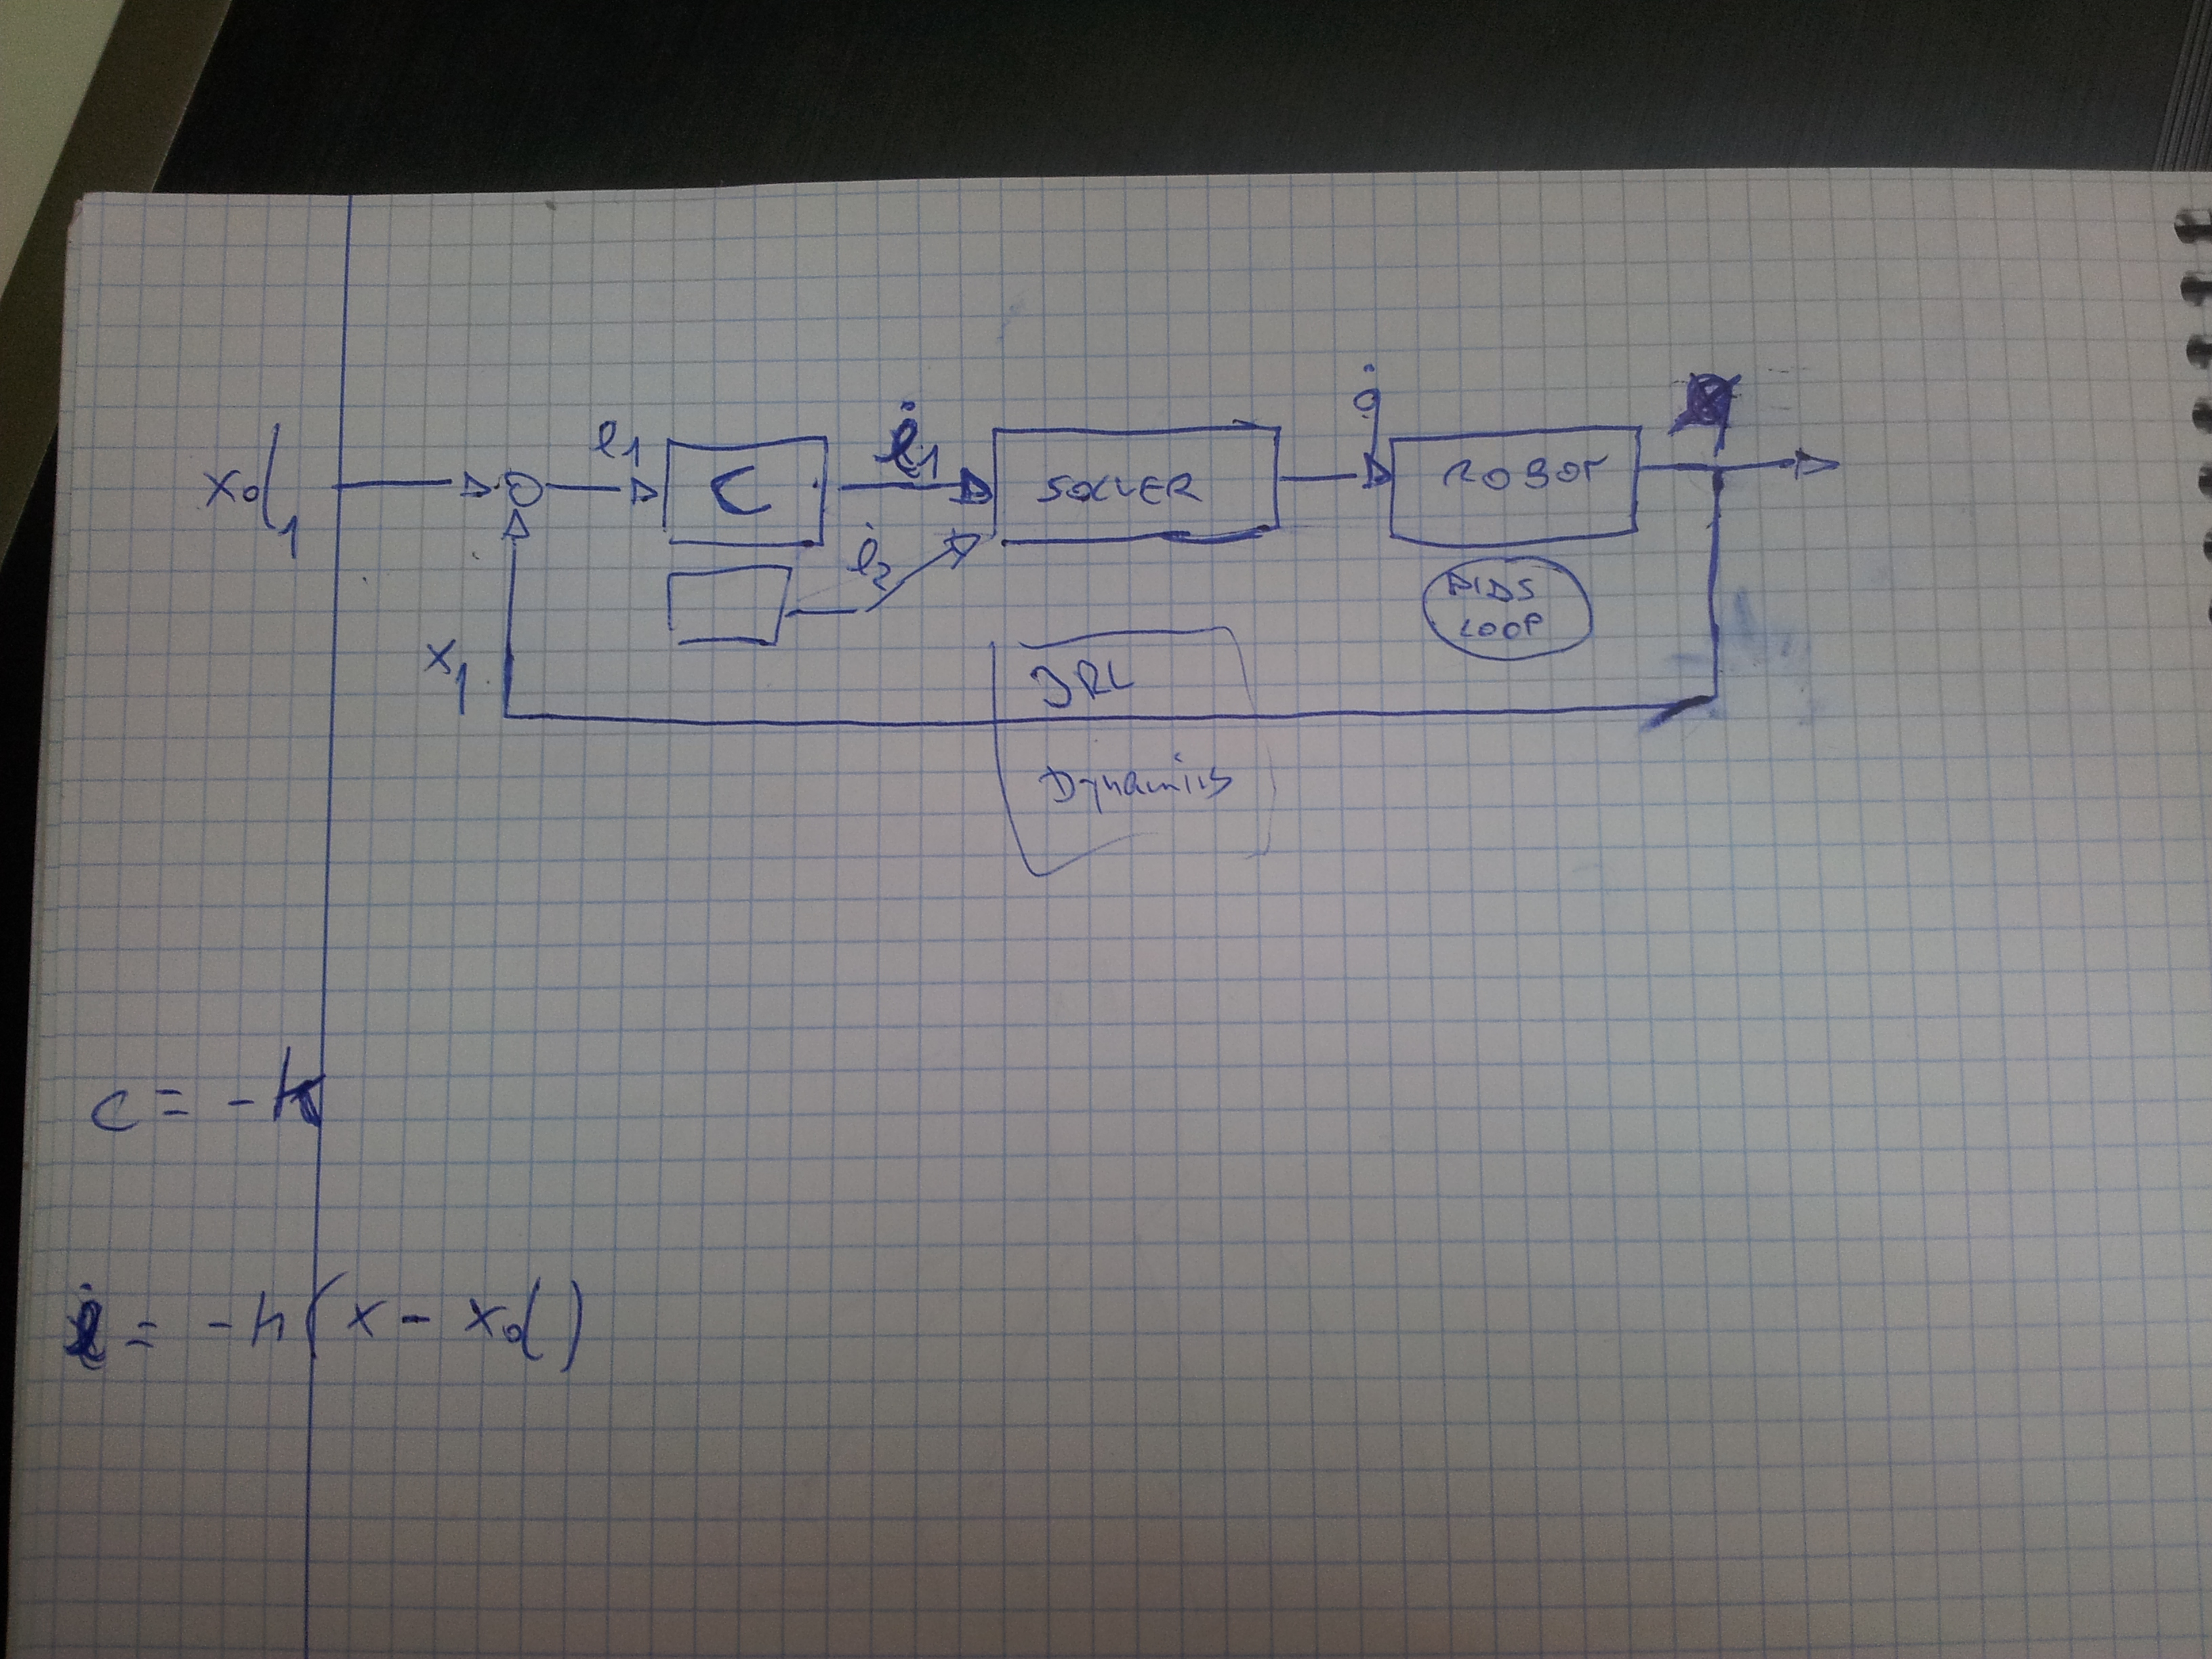 xd1
e1
C
ė1
SOLVER
q̇
ROBOT
ė2
PIDS
LOOP
x1
JRL
Dynamics
C = -k
ė = -k(x - xd)